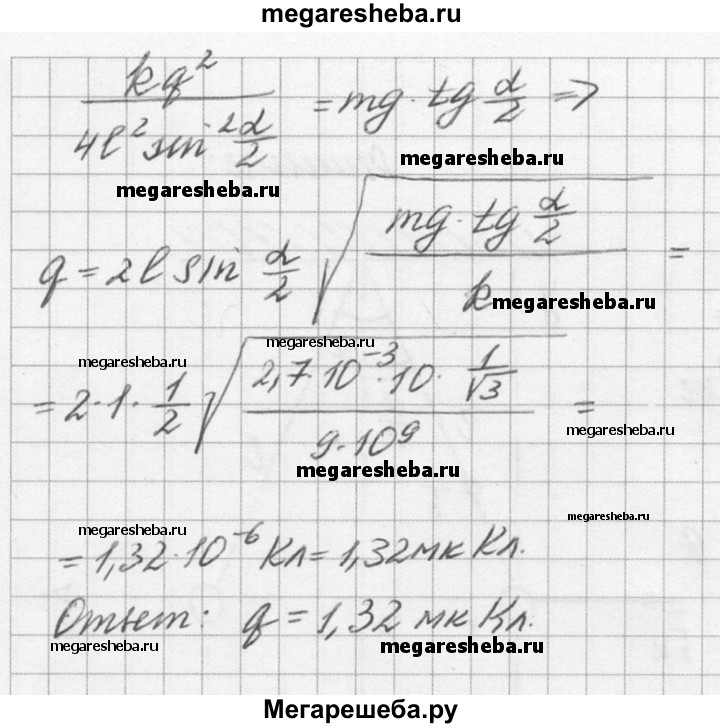 megaresheba.ru
kq² / 4l² sin² α/2 = mg · tg α/2 =>
megaresheba.ru
megaresheba.ru
q = 2l sin α/2 √(mg · tg α/2 / k) =
megaresheba.ru
megaresheba.ru
megaresheba.ru
= 2 · 1 · 1/2 √(2,7 · 10⁻³ · 10 · 1/√3 / 9 · 10⁹) =
megaresheba.ru
megaresheba.ru
megaresheba.ru
megaresheba.ru
= 1,32 · 10⁻⁶ Кл = 1,32 мк Кл.
Ответ: q = 1,32 мк Кл.
megaresheba.ru
megaresheba.ru
Мегарешеба.ру